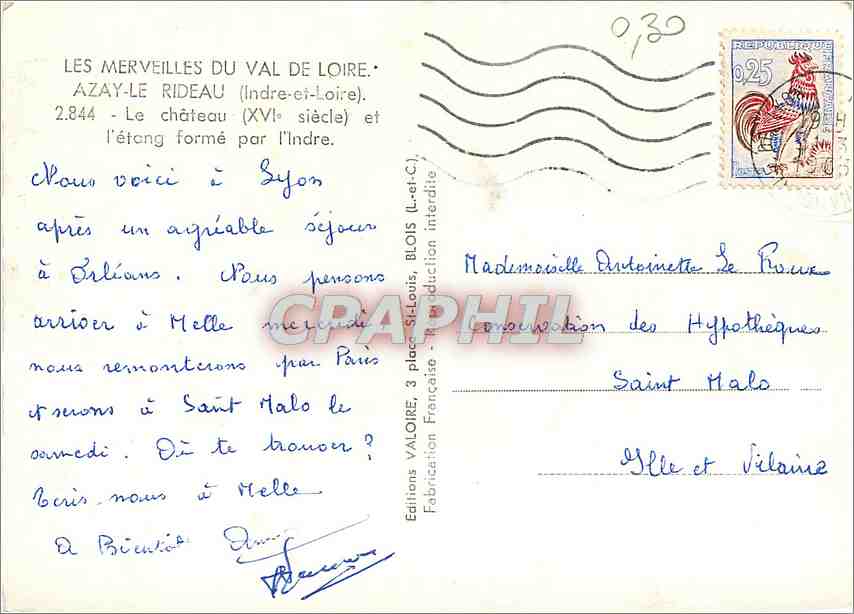 LES MERVEILLES DU VAL DE LOIRE.
AZAY-LE RIDEAU (Indre-et-Loire).
2.844 - Le château (XVIe siècle) et
l'étang formé par l'Indre.
Nous voici à Lyon
après un agréable séjour
à Orléans. Nous pensons
arriver à Melle mercredi.
nous remonterons par Paris
et serons à Saint Malo le
samedi. Où te trouver?
Ecris-nous à Melle
A Bientôt
Editions VALOIRE, 3 place St-Louis, BLOIS (L.-et-C.)
Fabrication Française - Reproduction interdite
0,30
REPUBLIQUE FRANÇAISE
0,25
Mademoiselle Antoinette Le Roux
Conservation des Hypothèques
Saint Malo
Ille et Vilaine
CPAPHIL